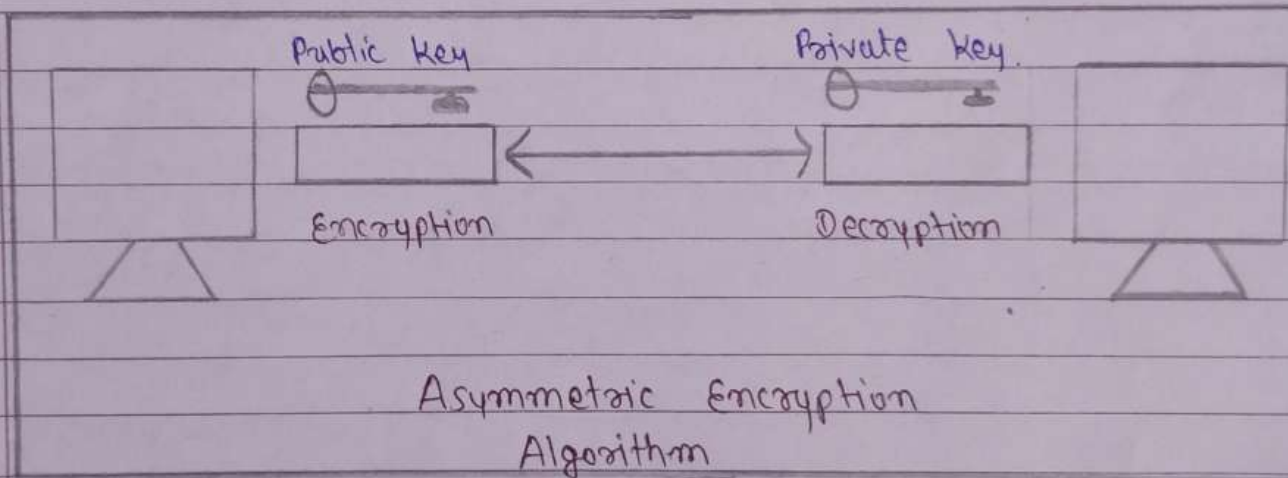 Public Key
Private Key.
Encryption
Decryption
Asymmetric Encryption
Algorithm